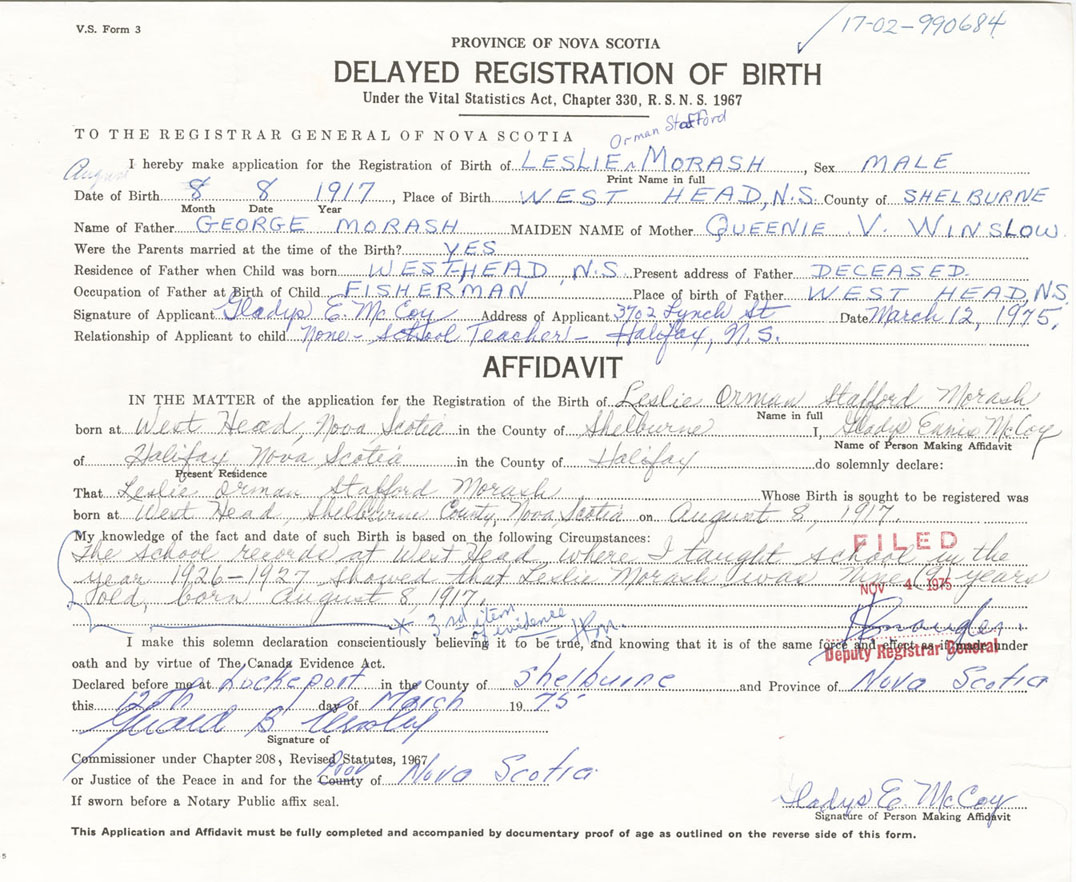 V.S. Form 3
17-02-990684
PROVINCE OF NOVA SCOTIA
DELAYED REGISTRATION OF BIRTH
Under the Vital Statistics Act, Chapter 330, R.S.N.S. 1967
TO THE REGISTRAR GENERAL OF NOVA SCOTIA
Orman Stafford
I hereby make application for the Registration of Birth of LESLIE MORASH, Sex MALE
Print Name in full
August
Date of Birth 8 8 1917, Place of Birth WEST HEAD, N.S. County of SHELBURNE
Month Date Year
Name of Father GEORGE MORASH MAIDEN NAME of Mother QUEENIE V. WINSLOW.
Were the Parents married at the time of the Birth? YES
Residence of Father when Child was born WEST-HEAD, N.S. Present address of Father DECEASED.
Occupation of Father at Birth of Child FISHERMAN Place of birth of Father WEST HEAD, N.S.
Signature of Applicant Gladys E. McCoy Address of Applicant 3702 Lynch St Date March 12, 1975.
Relationship of Applicant to child None - School Teacher - Halifax, N.S.
AFFIDAVIT
IN THE MATTER of the application for the Registration of the Birth of Leslie Orman Stafford Morash
Name in full
born at West Head, Nova Scotia in the County of Shelburne I, Gladys Ennis McCoy
Name of Person Making Affidavit
of Halifax Nova Scotia in the County of Halifax do solemnly declare:
Present Residence
That Leslie Orman Stafford Morash Whose Birth is sought to be registered was
born at West Head, Shelburne County, Nova Scotia on August 8, 1917.
My knowledge of the fact and date of such Birth is based on the following Circumstances:
FILED
The school records at West Head where I taught school in the
year 1926-1927 showed that Leslie Morash was Nine (9) years
NOV 4 1975
old, born August 8, 1917.
* 3rd item of evidence
I make this solemn declaration conscientiously believing it to be true, and knowing that it is of the same force and effect as if made under
Deputy Registrar General
oath and by virtue of The Canada Evidence Act.
Declared before me at Lockeport in the County of Shelburne and Province of Nova Scotia
this 12th day of March 19 75
Signature of
Commissioner under Chapter 208, Revised Statutes, 1967
or Justice of the Peace in and for the County Prov of Nova Scotia
If sworn before a Notary Public affix seal.
Gladys E. McCoy
Signature of Person Making Affidavit
This Application and Affidavit must be fully completed and accompanied by documentary proof of age as outlined on the reverse side of this form.
5